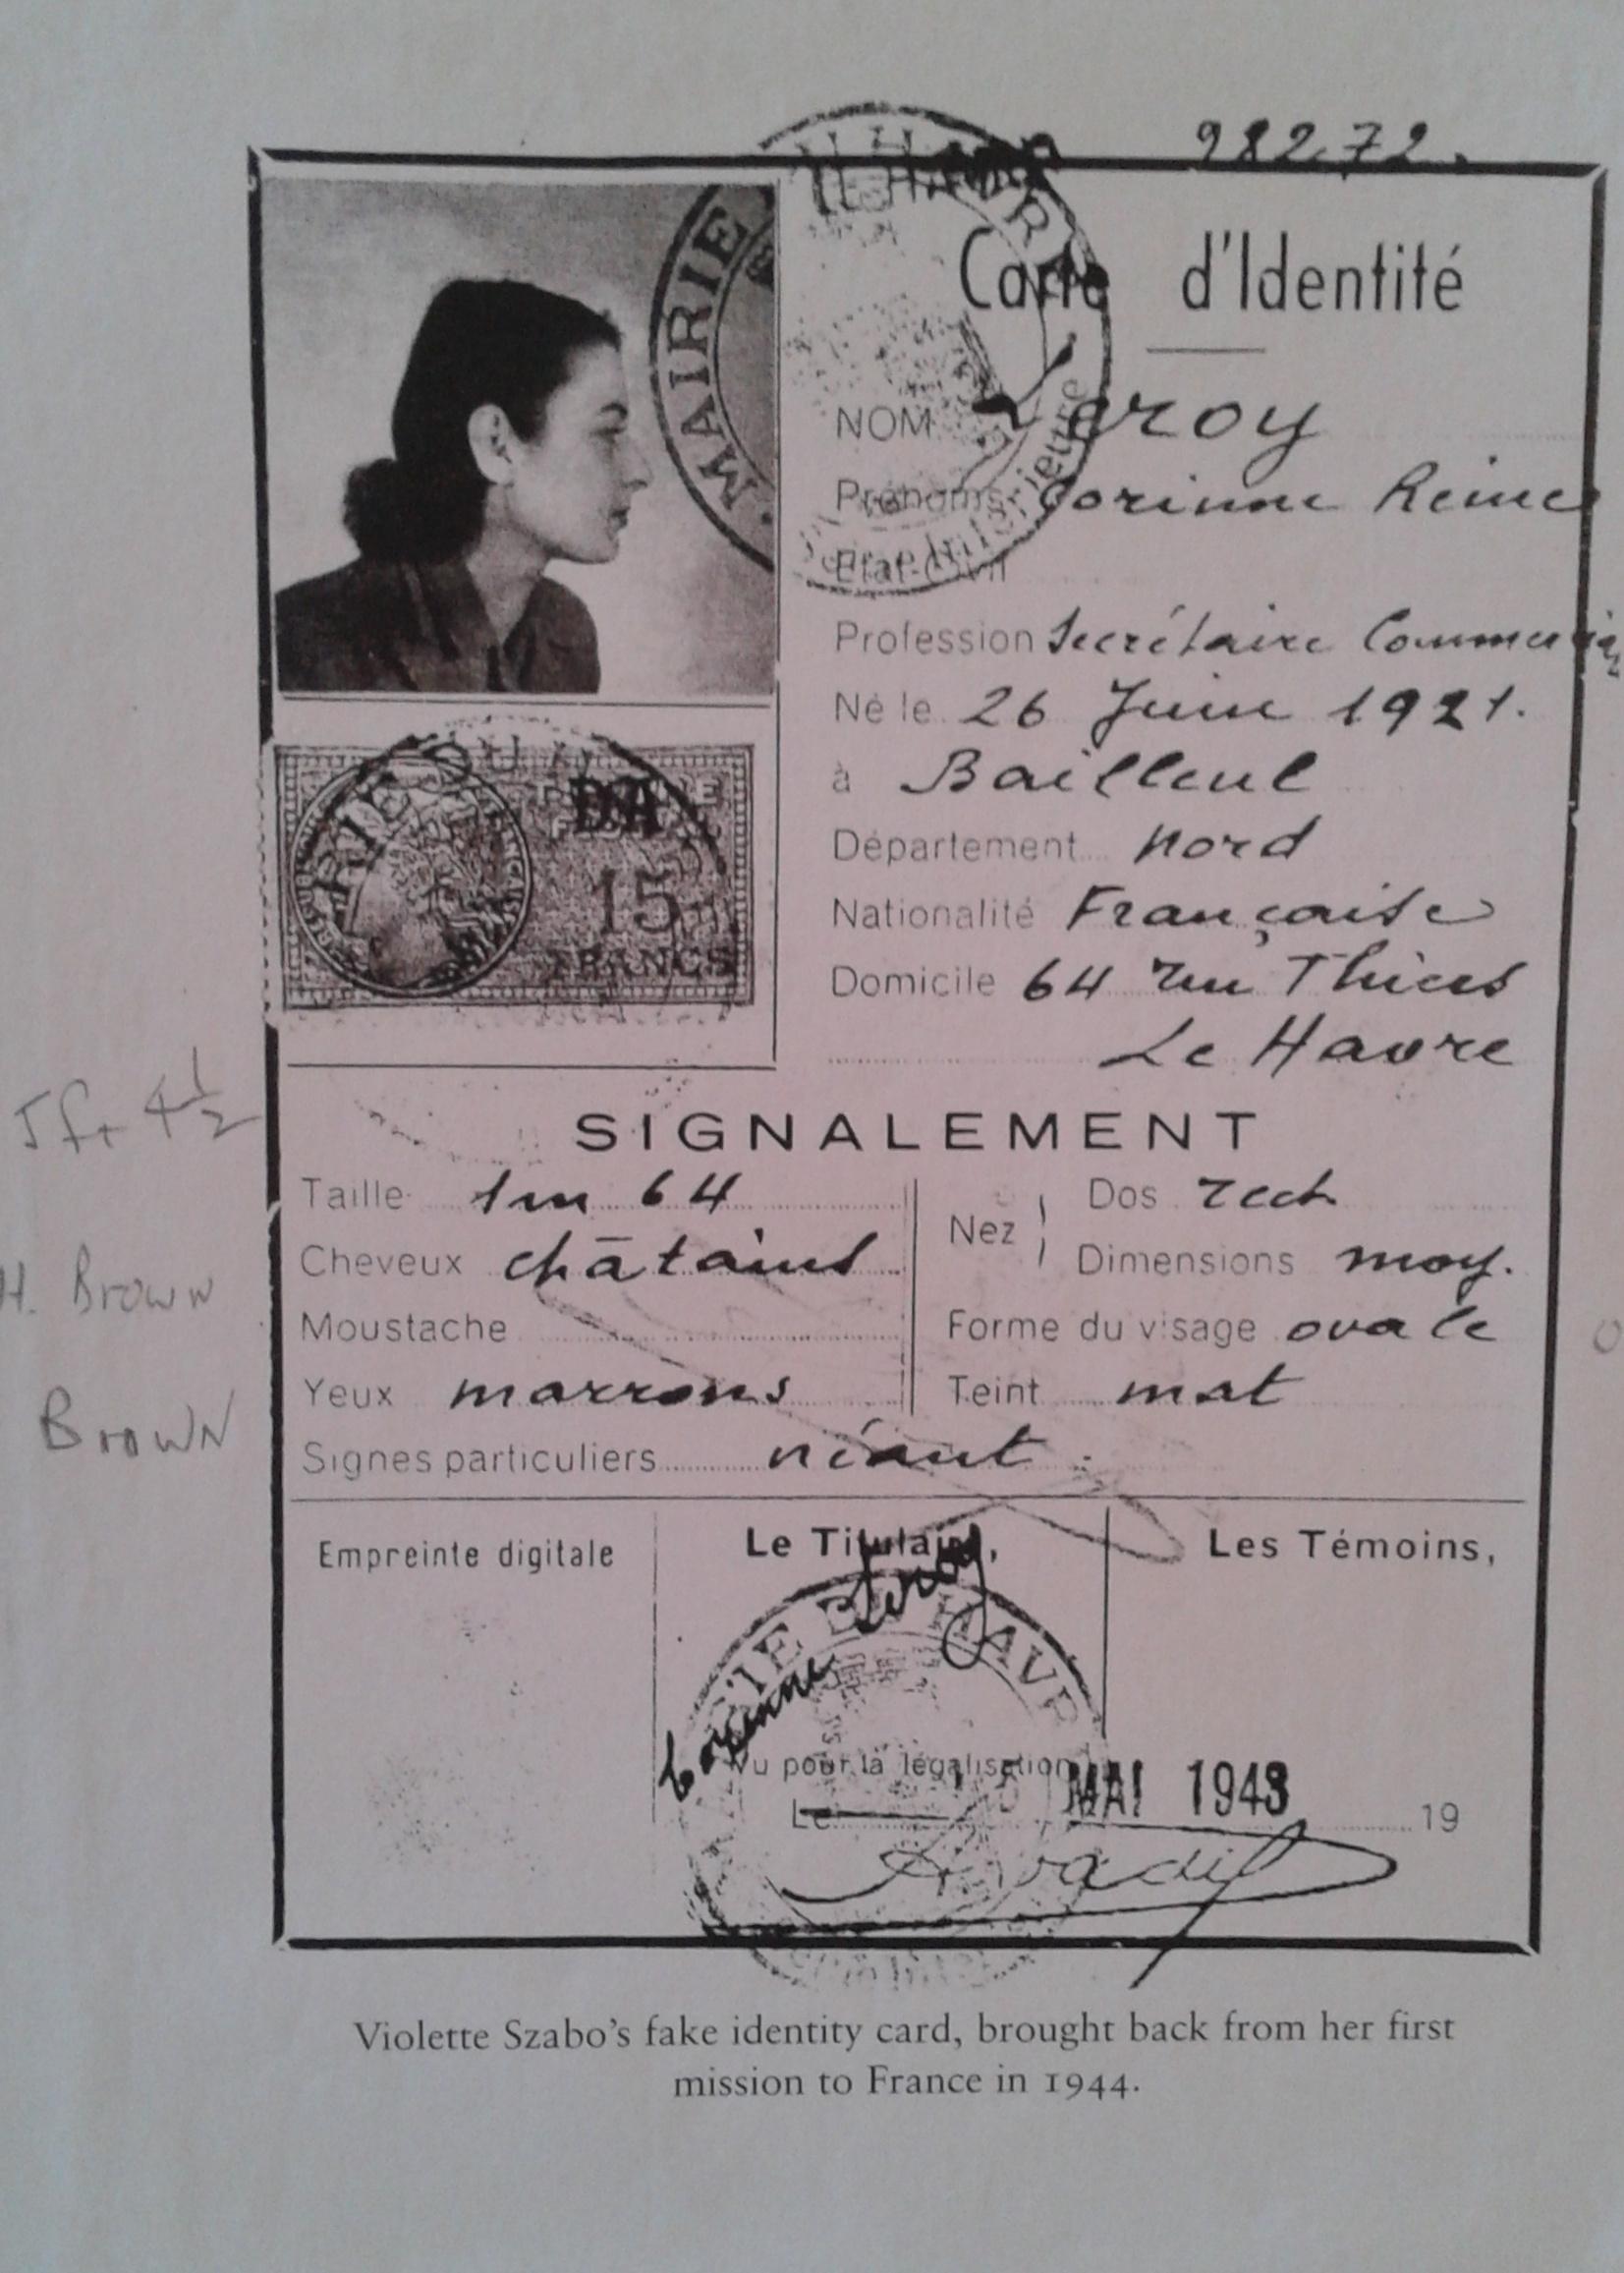 98272.
MAIRIE
Carte d'Identité
NOM Leroy
Prénoms Corinne Reine
Etat-Civil
Profession Secrétaire
Né le 26 Juin 1921.
à Bailleul
Département Nord
Nationalité Française
Domicile 64 rue Thiers
Le Havre
DA
15
FRANCS
5 ft 4 1/2
SIGNALEMENT
Taille 1m 64
Cheveux châtains
H. Brown
Moustache
Yeux marrons
Brown
Signes particuliers néant
Nez
Dos rect
Dimensions moy.
Forme du visage ovale
Teint mat
Empreinte digitale
Le Titulaire,
Les Témoins,
Corinne Leroy
Vu pour la légalisation
Le MAI 1943 19
Violette Szabo's fake identity card, brought back from her first
mission to France in 1944.